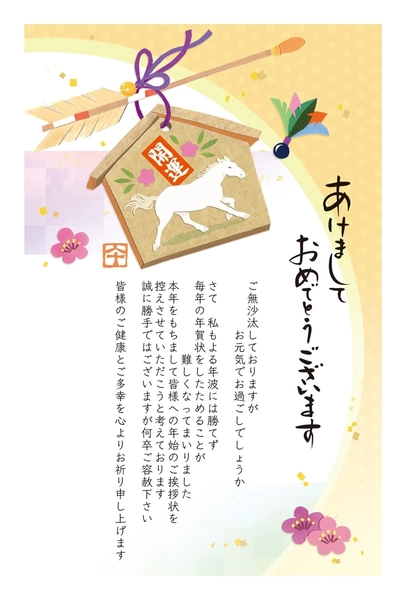 あけまして
おめでとうございます
開運
ご無沙汰しておりますが
お元気でお過ごしでしょうか
さて 私もよる年波には勝てず
毎年の年賀状をしたためることが
難しくなってまいりました
本年をもちまして皆様への年始のご挨拶状を
控えさせていただこうと考えております
誠に勝手ではございますが何卒ご容赦下さい
皆様のご健康とご多幸を心よりお祈り申し上げます